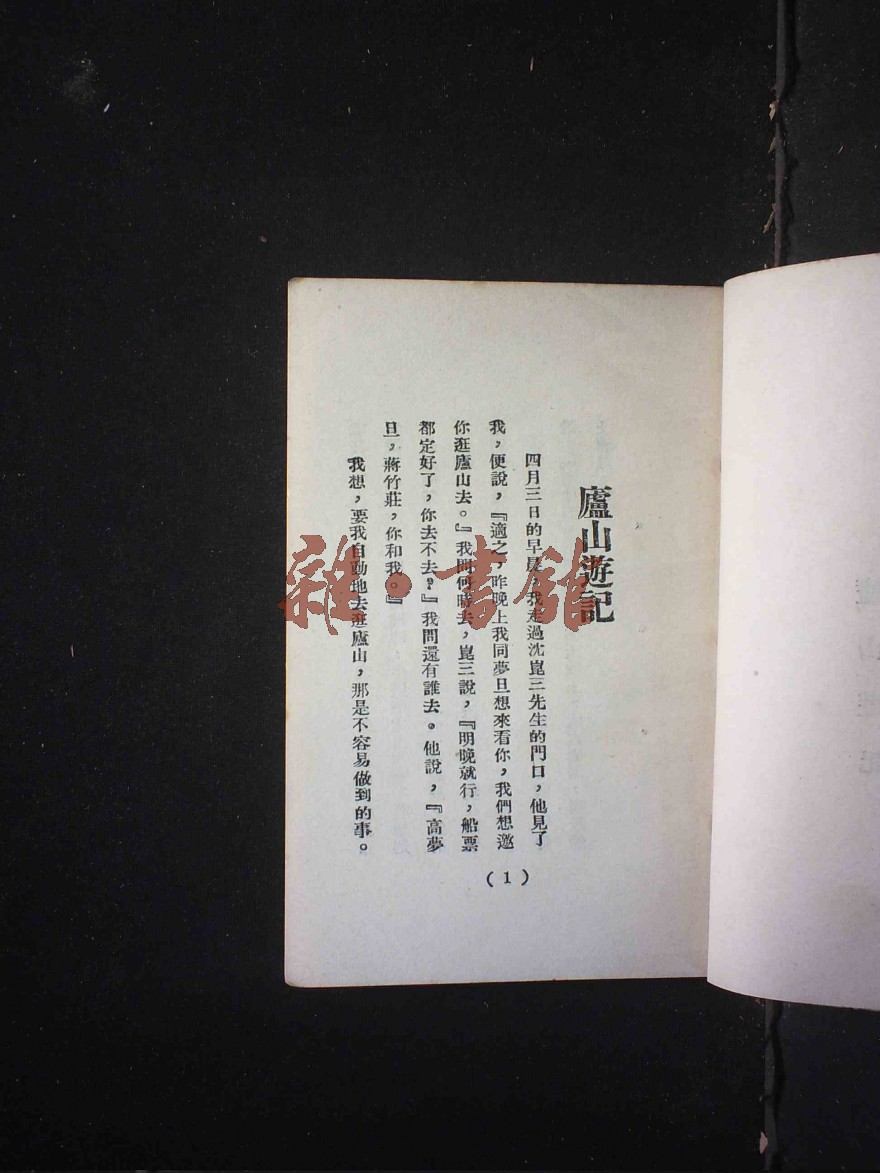 廬山遊記
四月三日的早晨，我走過沈崑三先生的門口，他見了
我，便說，『適之，昨晚上我同夢旦想來看你，我們想邀
你逛廬山去。』我問何時去，崑三說，『明晚就行，船票
都定好了，你去不去？』我問還有誰去。他說，『高夢
旦，蔣竹莊，你和我。』
我想，要我自動地去逛廬山，那是不容易做到的事。
(1)
雜·書館